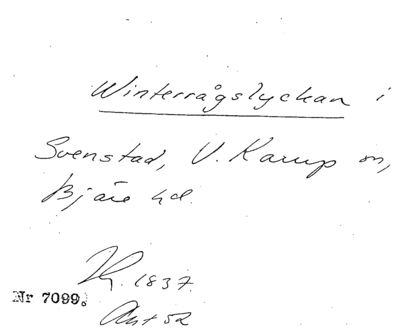 Winterrågslyckan i
Svenstad, V. Karup sn,
Bjäre hd.
1837.
Nr 7099.